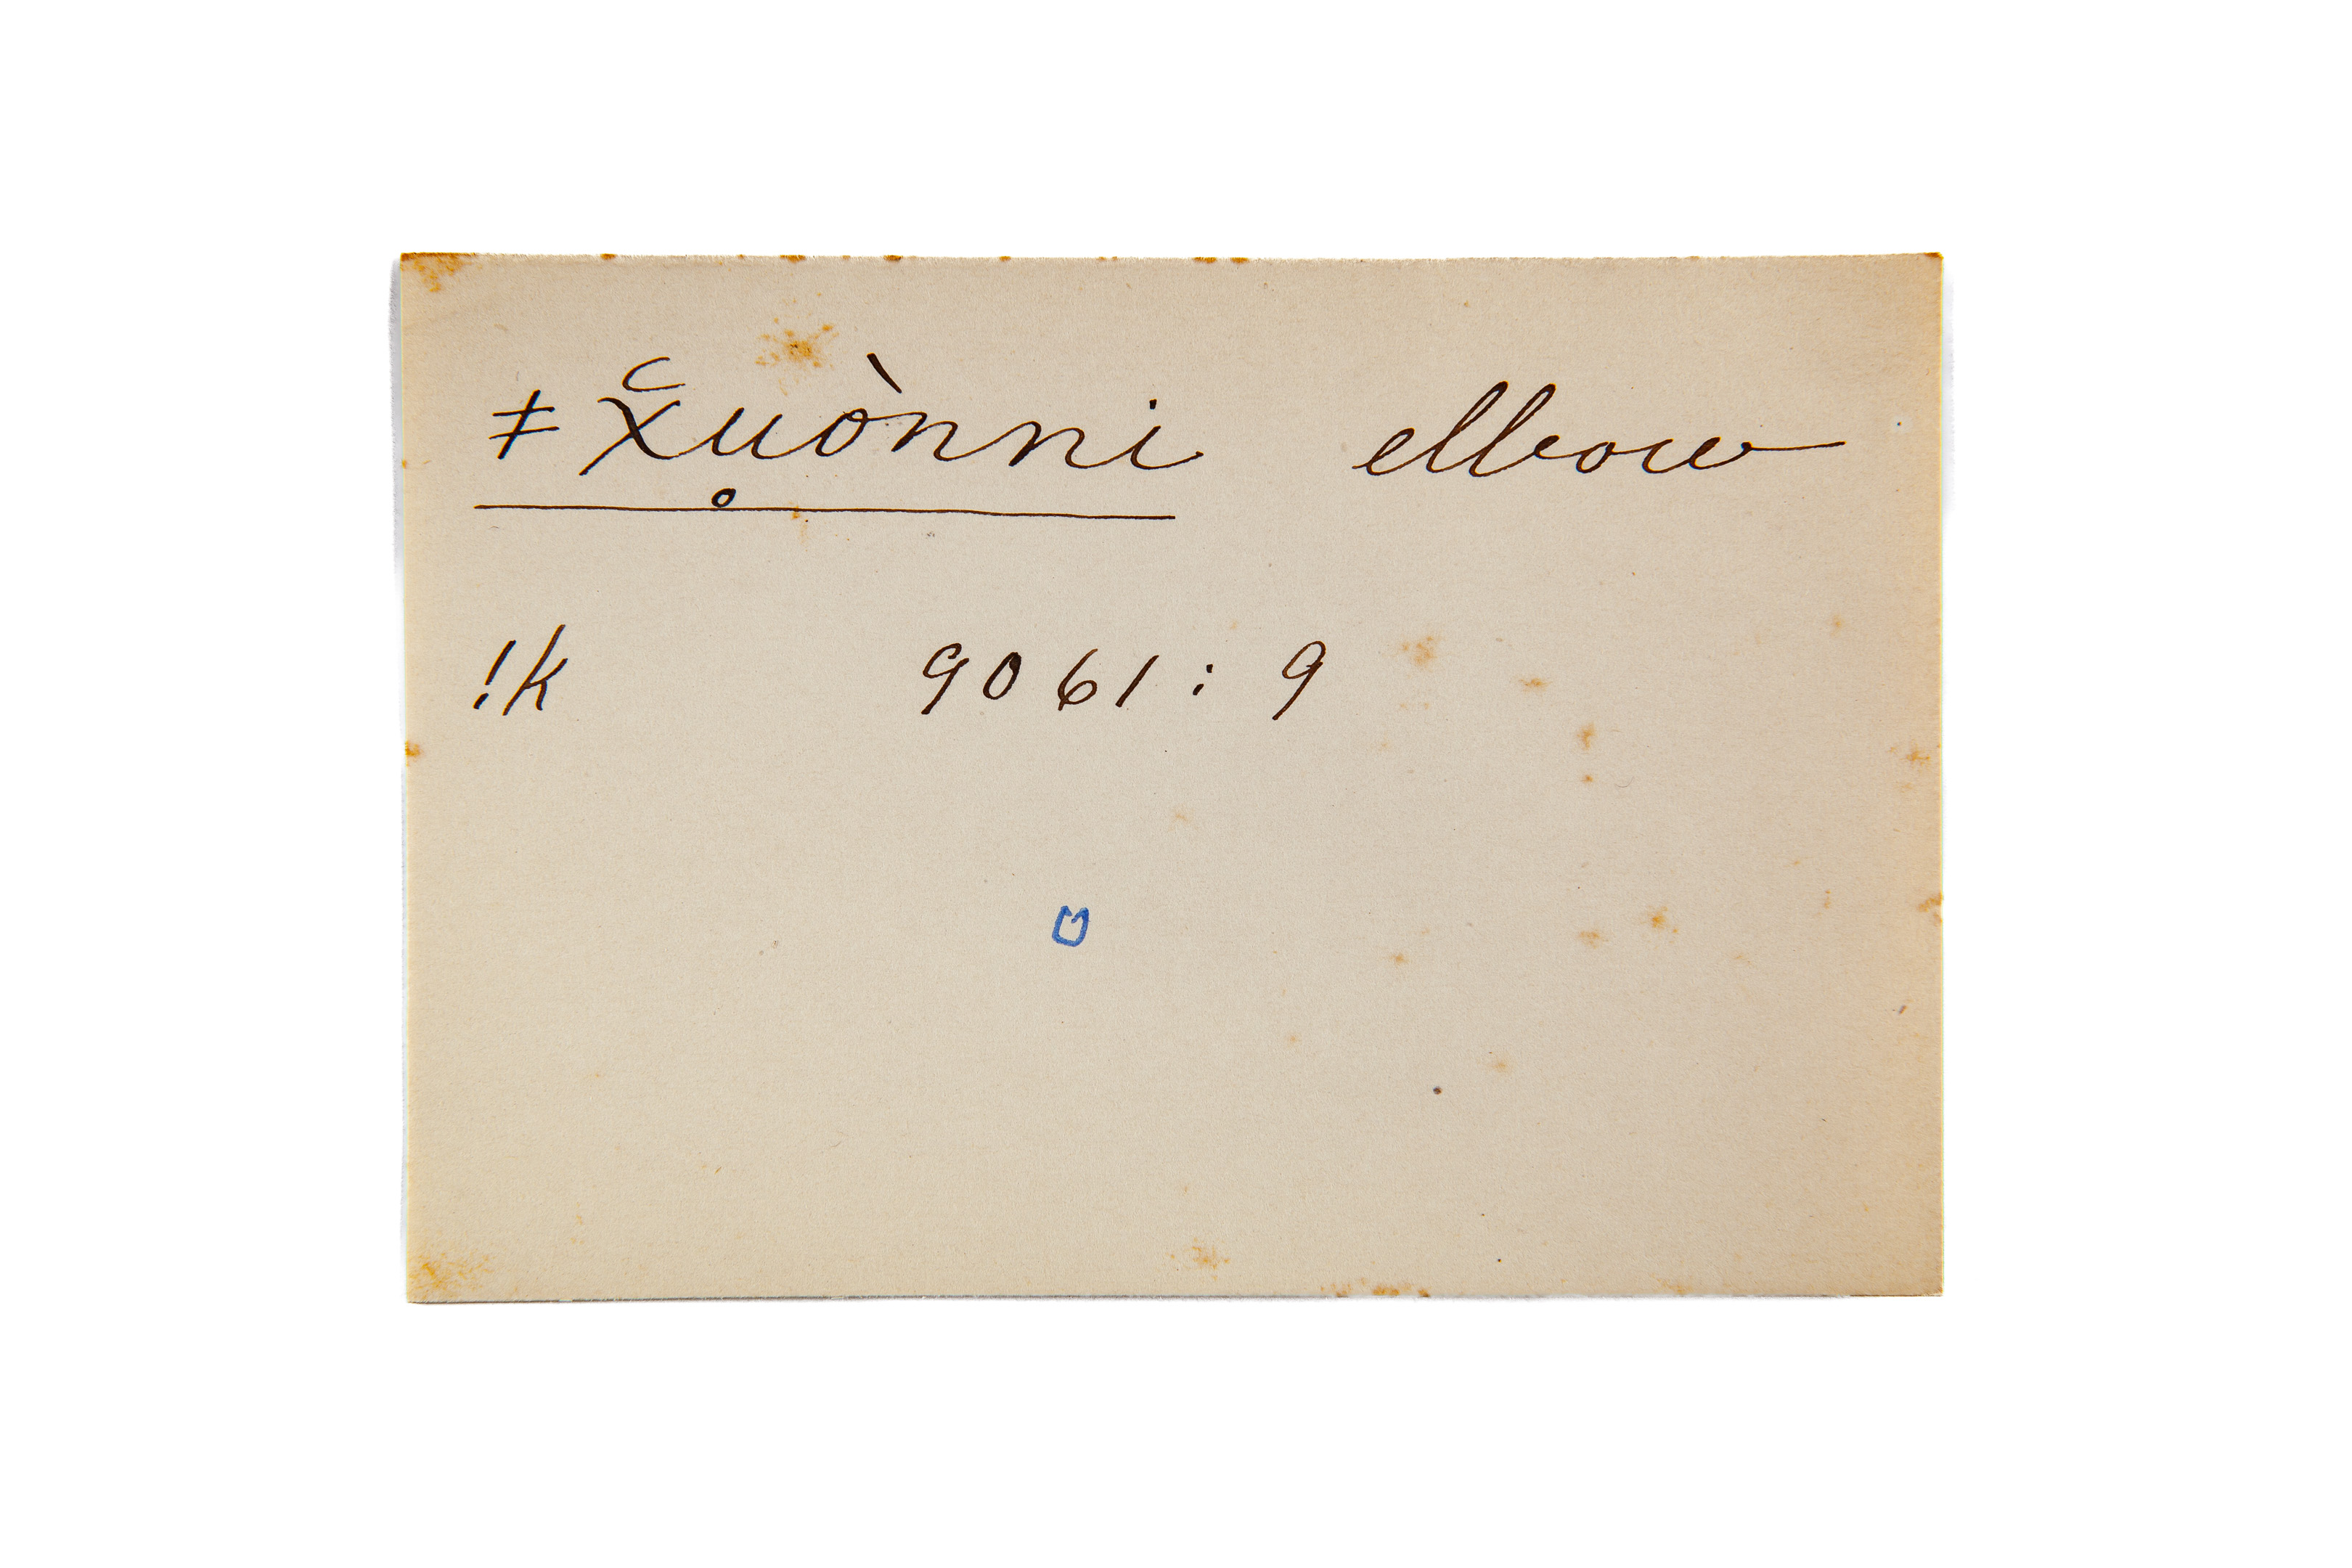 ǂx̆u̥ònni elbow
!k 9061 : 9